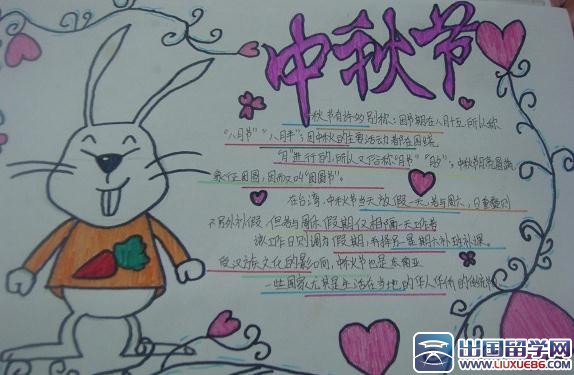 中秋节
中秋节有许多别称：因节期在八月十五，所以称
“八月节”“八月半”；因中秋的主要活动都在围绕
“月”进行的，所以又俗称“月节”“月夕”，中秋节月亮圆满
象征团圆，因而又叫“团圆节”。
在台湾，中秋节当天放假一天，若与周六、日重叠则
不另外补假，但若与周休假期仅相隔一天工作者
该工作日则调为假期，再择另星期六补班补课。
受汉族文化的影响，中秋节也是东南亚
一些国家尤其是生活在当地的华人华侨的传统
出国留学网
WWW.LIUXUE86.COM